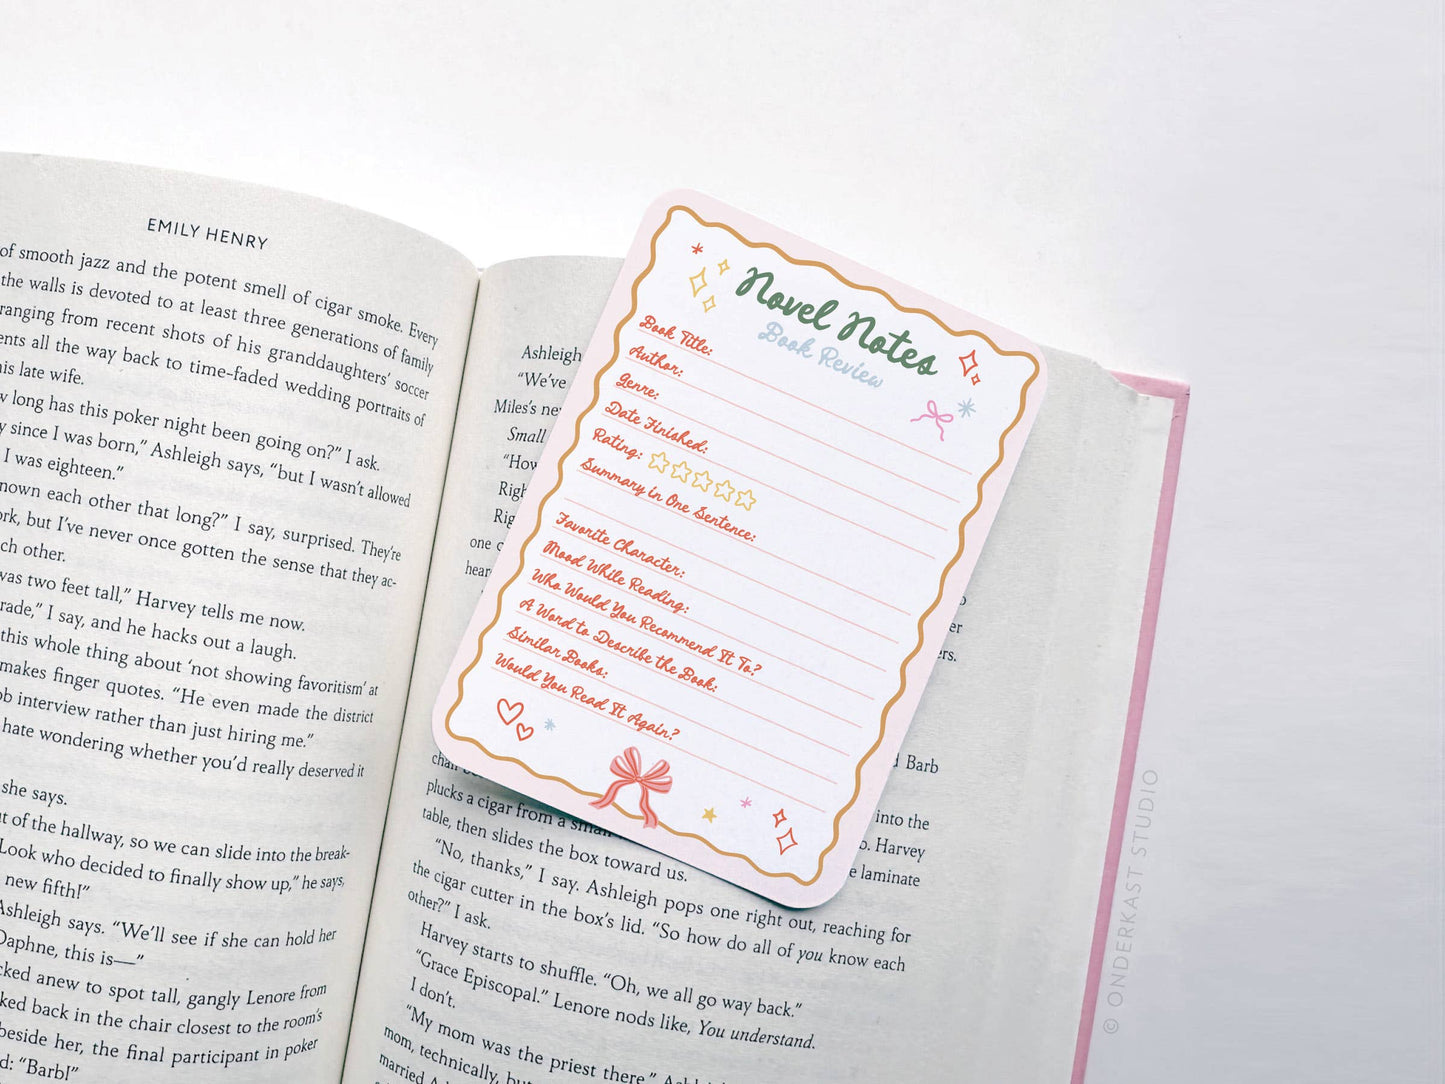 EMILY HENRY
of smooth jazz and the potent smell of cigar smoke. Every
the walls is devoted to at least three generations of family
ranging from recent shots of his granddaughters’ soccer
ents all the way back to time-faded wedding portraits of
his late wife.
w long has this poker night been going on?” I ask.
y since I was born,” Ashleigh says, “but I wasn’t allowed
I was eighteen.”
nown each other that long?” I say, surprised. They’re
ork, but I’ve never once gotten the sense that they ac-
ch other.
was two feet tall,” Harvey tells me now.
rade,” I say, and he hacks out a laugh.
this whole thing about ‘not showing favoritism’ at
makes finger quotes. “He even made the district
ob interview rather than just hiring me.”
hate wondering whether you’d really deserved it
she says.
ut of the hallway, so we can slide into the break-
Look who decided to finally show up,” he says,
new fifth!”
Ashleigh says. “We’ll see if she can hold her
Daphne, this is—”
cked anew to spot tall, gangly Lenore from
ked back in the chair closest to the room’s
beside her, the final participant in poker
d: “Barb!”
Novel Notes
Book Review
Book Title:
Author:
Genre:
Date Finished:
Rating:
Summary in One Sentence:
Favorite Character:
Mood While Reading:
Who Would You Recommend It To?
A Word to Describe the Book:
Similar Books:
Would You Read It Again?
Ashleigh
“We’ve
Miles’s ne
Small
“How
Righ
Rig
one c
hear
er
ers.
d Barb
into the
o. Harvey
e laminate
plucks a cigar from a small
table, then slides the box toward us.
“No, thanks,” I say. Ashleigh pops one right out, reaching for
the cigar cutter in the box’s lid. “So how do all of you know each
other?” I ask.
Harvey starts to shuffle. “Oh, we all go way back.”
“Grace Episcopal.” Lenore nods like, You understand.
I don’t.
“My mom was the priest there,”
mom, technically, but
married
© ONDERKAST STUDIO